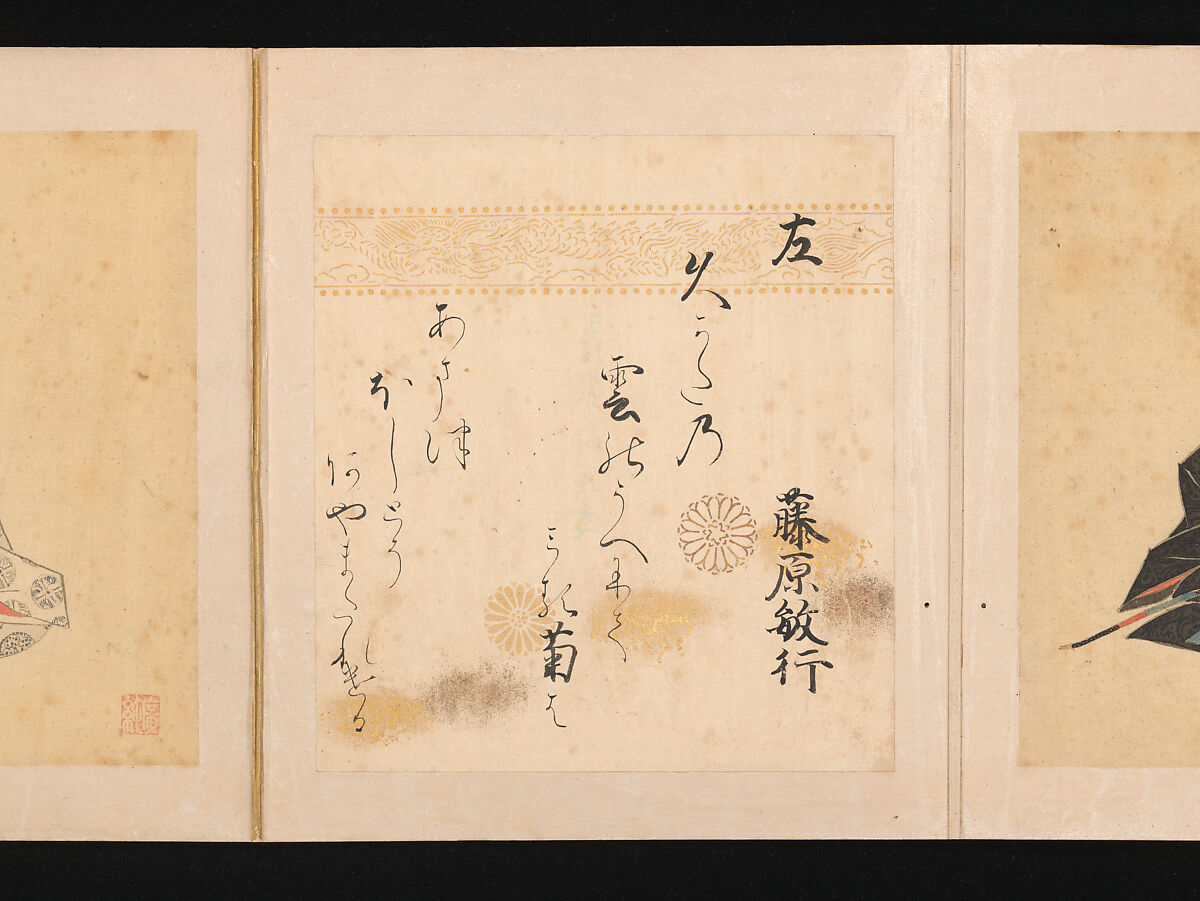 左 藤原敏行
久かた乃
雲のうへにて
みる菊は
あま津
ほしとそ
あやまたれける